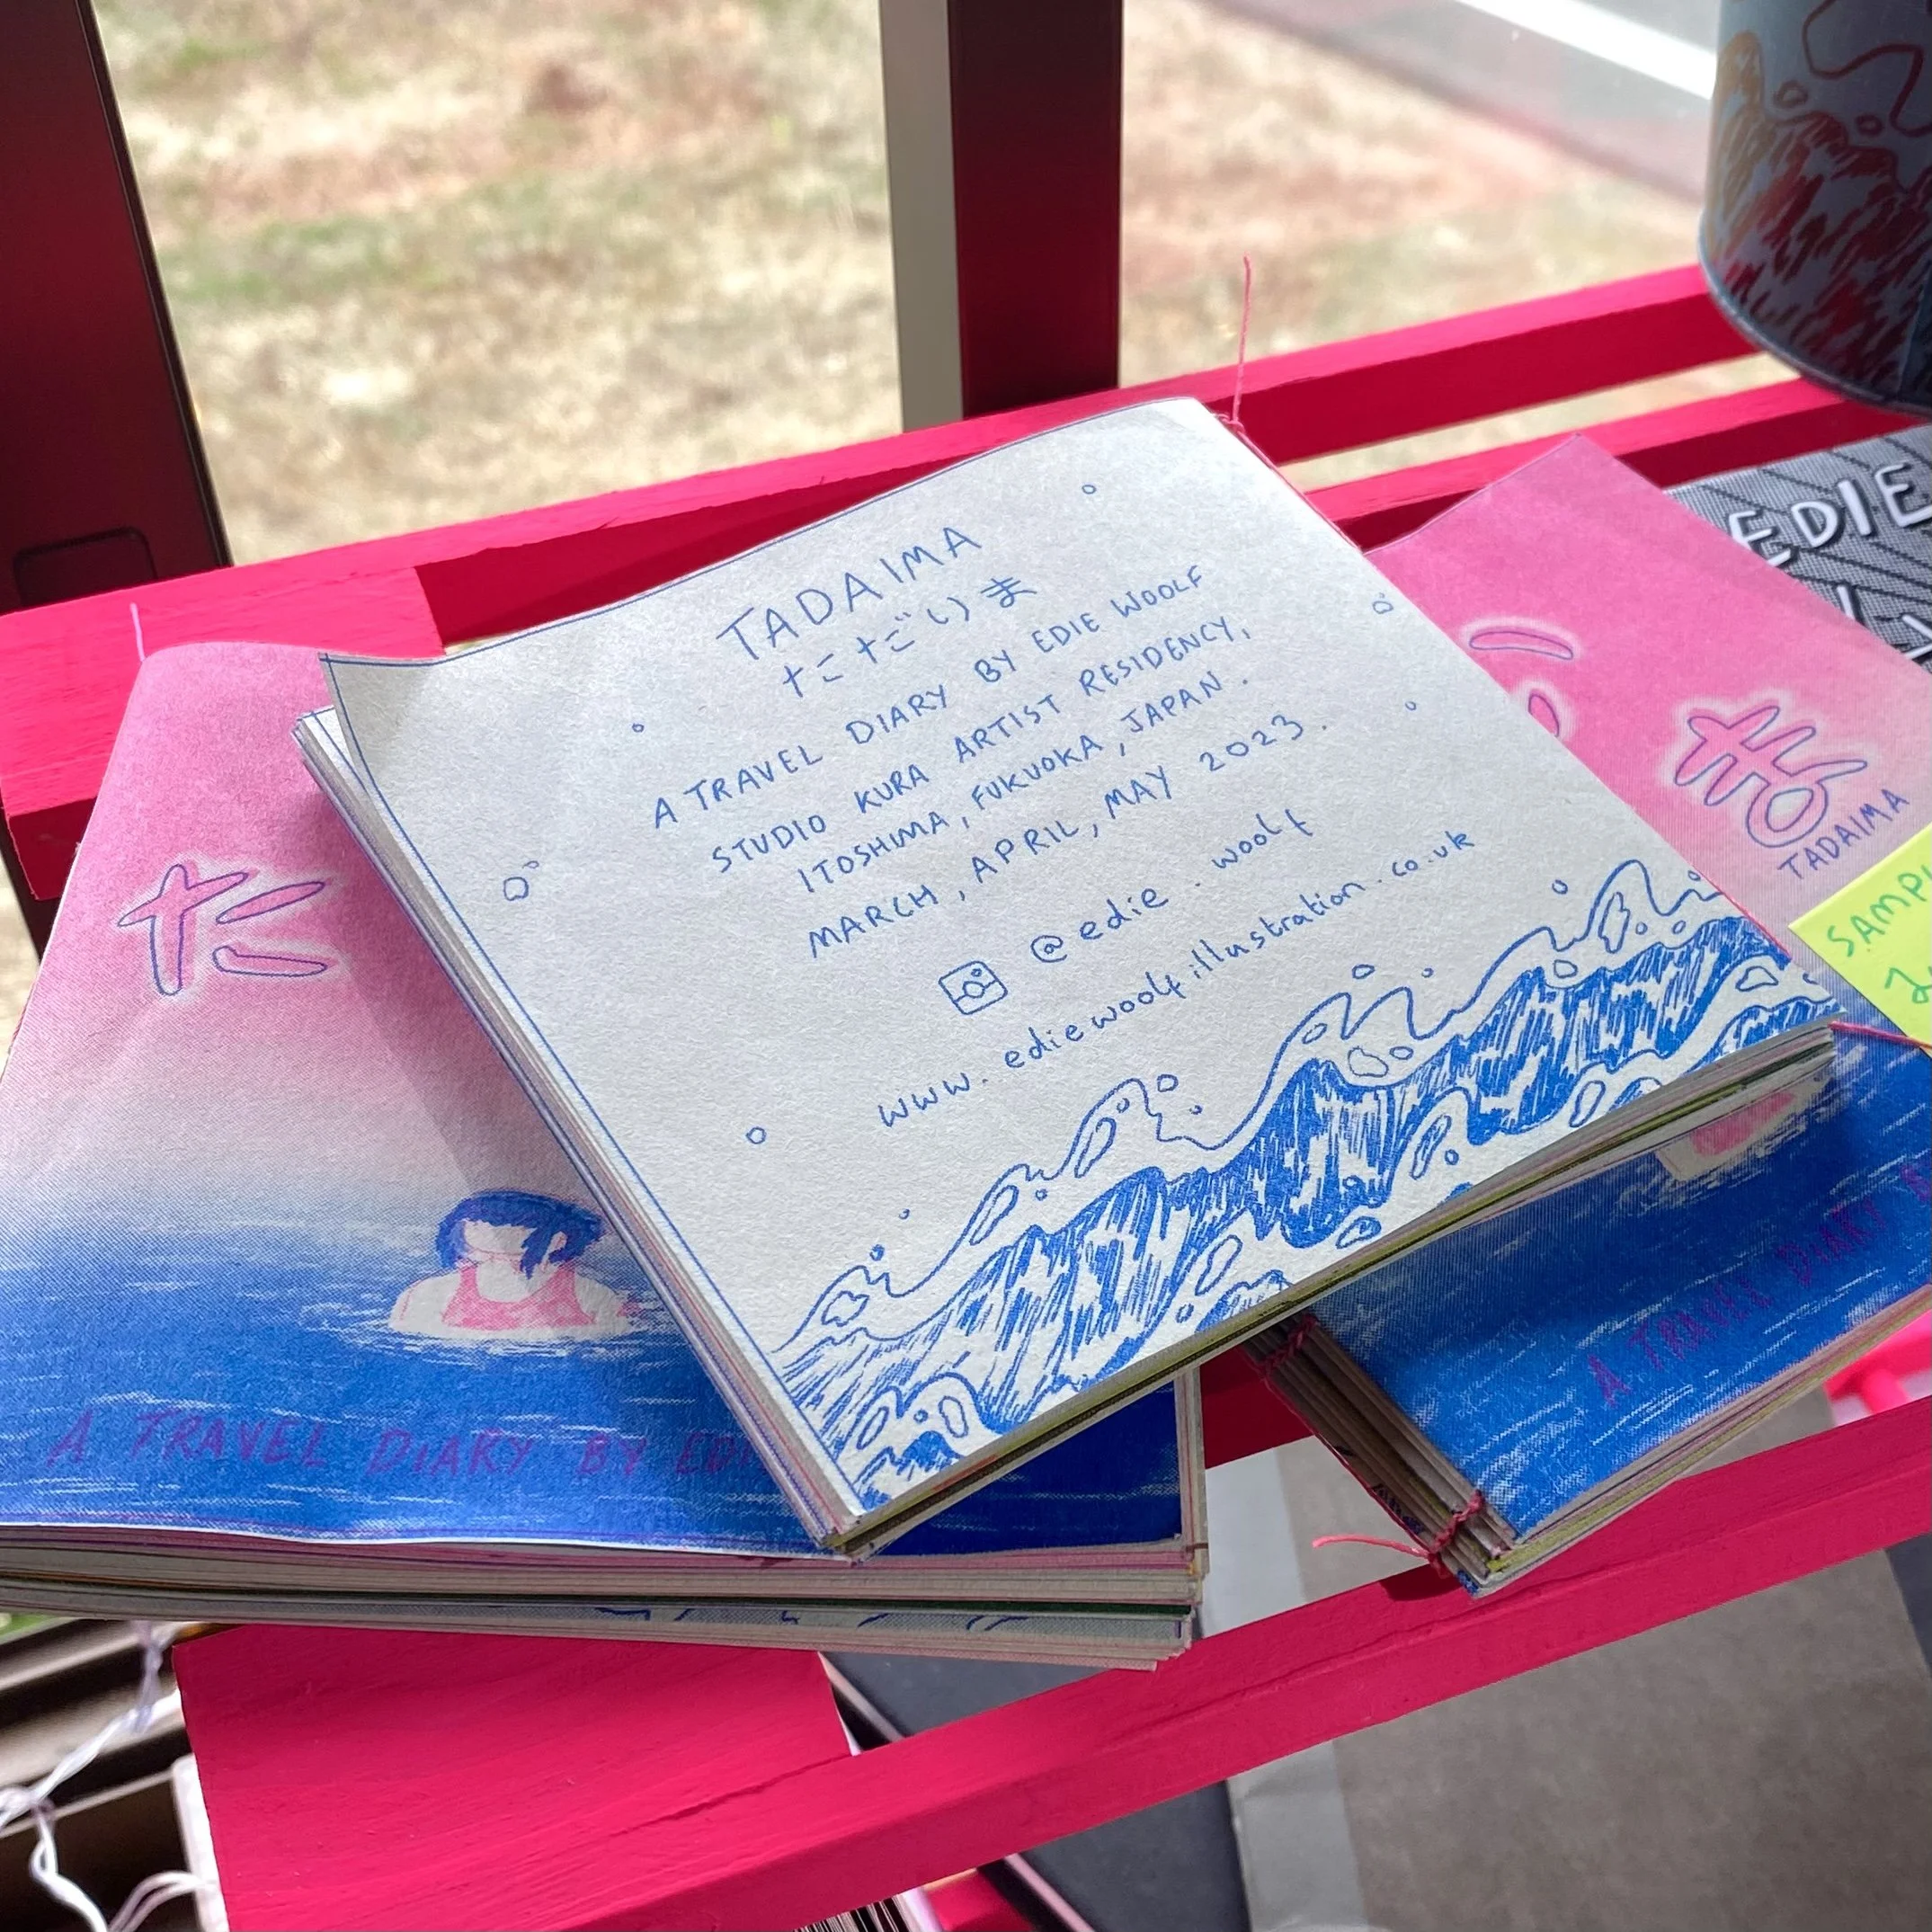 TADAIMA
ただいま
A TRAVEL DIARY BY EDIE WOOLF
STUDIO KURA ARTIST RESIDENCY,
ITOSHIMA, FUKUOKA, JAPAN.
MARCH, APRIL, MAY 2023.
@edie.woolf
www.ediewoolfillustration.co.uk
た
A TRAVEL DIARY BY EDI
ま
TADAIMA
A TRAVEL DIARY
EDIE